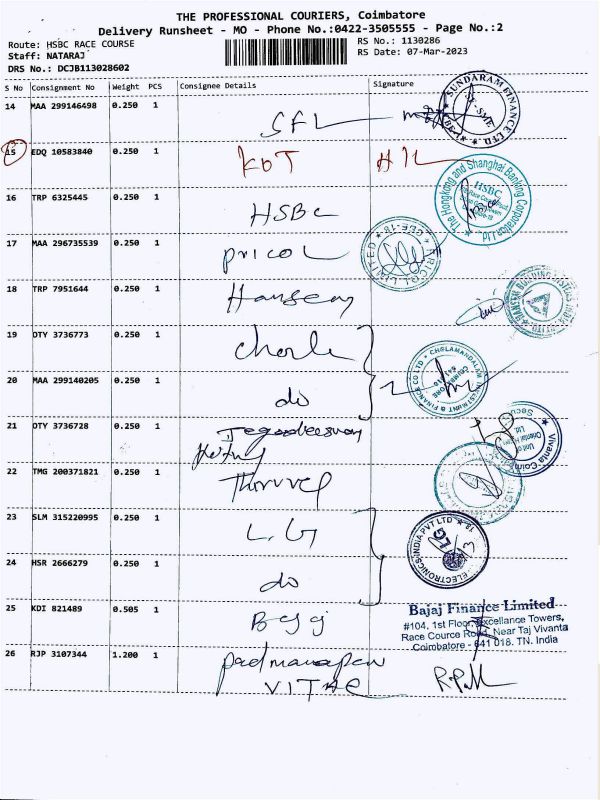 THE PROFESSIONAL COURIERS, Coimbatore
Delivery Runsheet - MO - Phone No.:0422-3505555 - Page No.:2
Route: HSBC RACE COURSE
RS No.: 1130286
Staff: NATARAJ
RS Date: 07-Mar-2023
DRS No.: DCJB113028602
S No Consignment No Weight PCS Consignee Details Signature
14 MAA 299146498 0.250 1 SFL
SUNDARAM FINANCE LTD.
15 EDQ 10583840 0.250 1 KOT
The Hongkong and Shanghai Banking Corporation Ltd
HSBC
16 TRP 6325445 0.250 1 HSBC
17 MAA 296735539 0.250 1 PRICOL
PRICOL LIMITED CBE-18
18 TRP 7951644 0.250 1
19 DTY 3736773 0.250 1 Chola
CHOLAMANDALAM INVESTMENT & FINANCE CO LTD
COIMBATORE
20 MAA 299140205 0.250 1 do
21 DTY 3736728 0.250 1
Vivanta Coim
22 TMG 200371821 0.250 1
23 SLM 315220995 0.250 1 L.G
LG ELECTRONICS INDIA PVT LTD
24 HSR 2666279 0.250 1 do
25 KDI 821489 0.505 1
Bajaj Finance Limited
#104, 1st Floor, Excellance Towers,
Race Cource Road, Near Taj Vivanta
Coimbatore - 641 018. TN. India
26 RJP 3107344 1.200 1